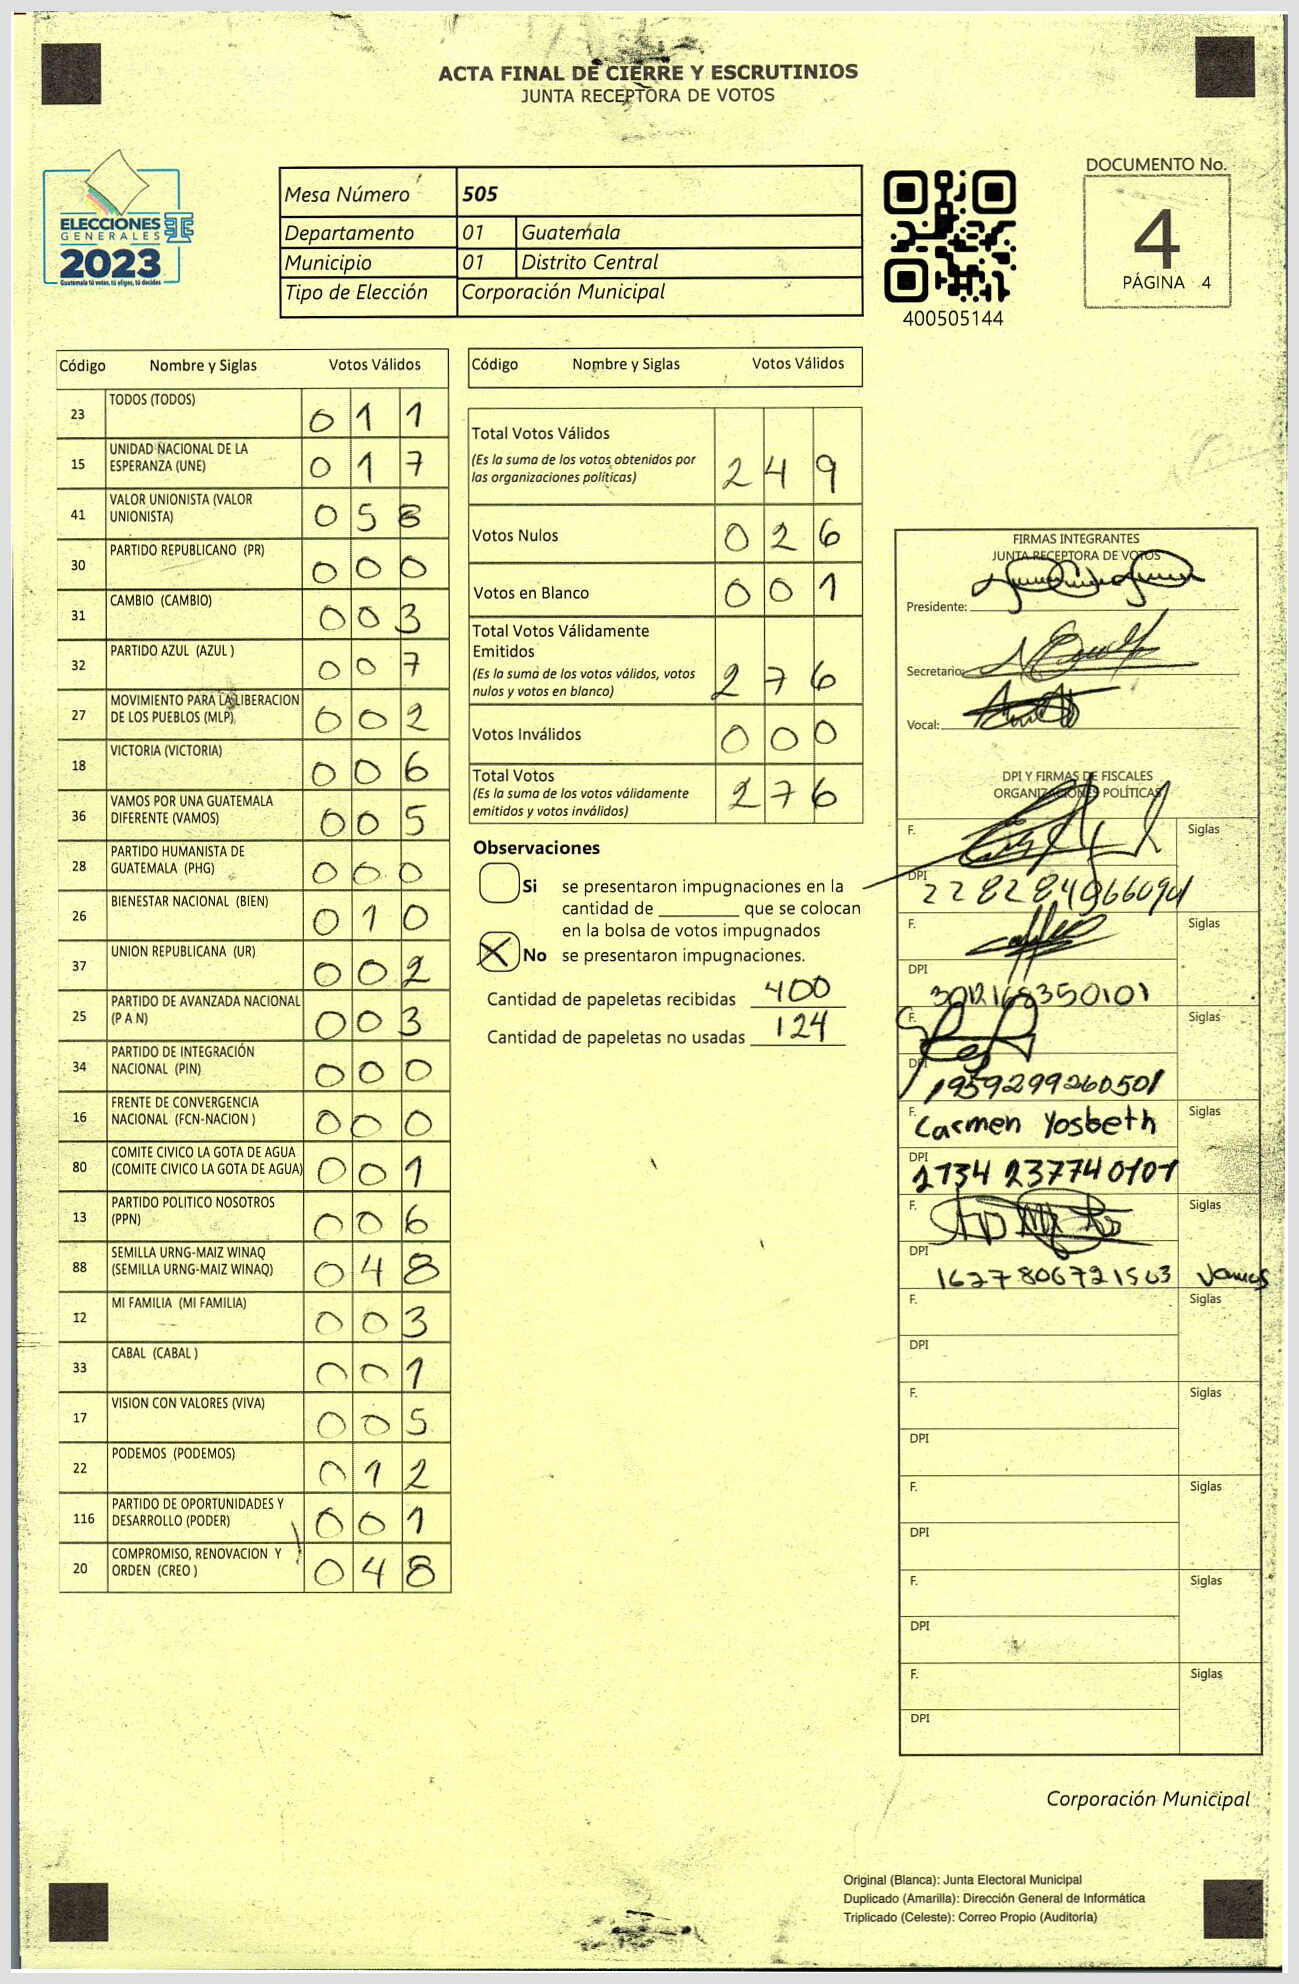 ACTA FINAL DE CIERRE Y ESCRUTINIOS
JUNTA RECEPTORA DE VOTOS
ELECCIONES
GENERALES
2023
Guatemala tú votas, tú eliges, tú decides
Mesa Número 505
Departamento 01 Guatemala
Municipio 01 Distrito Central
Tipo de Elección Corporación Municipal
400505144
DOCUMENTO No.
4
PÁGINA 4
Código Nombre y Siglas Votos Válidos
23 TODOS (TODOS) 0 1 1
15 UNIDAD NACIONAL DE LA
ESPERANZA (UNE) 0 1 7
41 VALOR UNIONISTA (VALOR
UNIONISTA) 0 5 8
30 PARTIDO REPUBLICANO (PR) 0 0 0
31 CAMBIO (CAMBIO) 0 0 3
32 PARTIDO AZUL (AZUL ) 0 0 7
27 MOVIMIENTO PARA LA LIBERACION
DE LOS PUEBLOS (MLP) 0 0 2
18 VICTORIA (VICTORIA) 0 0 6
36 VAMOS POR UNA GUATEMALA
DIFERENTE (VAMOS) 0 0 5
28 PARTIDO HUMANISTA DE
GUATEMALA (PHG) 0 0 0
26 BIENESTAR NACIONAL (BIEN) 0 1 0
37 UNION REPUBLICANA (UR) 0 0 2
25 PARTIDO DE AVANZADA NACIONAL
(P A N) 0 0 3
34 PARTIDO DE INTEGRACIÓN
NACIONAL (PIN) 0 0 0
16 FRENTE DE CONVERGENCIA
NACIONAL (FCN-NACION ) 0 0 0
80 COMITE CIVICO LA GOTA DE AGUA
(COMITE CIVICO LA GOTA DE AGUA) 0 0 1
13 PARTIDO POLITICO NOSOTROS
(PPN) 0 0 6
88 SEMILLA URNG-MAIZ WINAQ
(SEMILLA URNG-MAIZ WINAQ) 0 4 8
12 MI FAMILIA (MI FAMILIA) 0 0 3
33 CABAL (CABAL ) 0 0 1
17 VISION CON VALORES (VIVA) 0 0 5
22 PODEMOS (PODEMOS) 0 1 2
116 PARTIDO DE OPORTUNIDADES Y
DESARROLLO (PODER) 0 0 1
20 COMPROMISO, RENOVACION Y
ORDEN (CREO ) 0 4 8
Código Nombre y Siglas Votos Válidos
Total Votos Válidos
(Es la suma de los votos obtenidos por
las organizaciones políticas) 2 4 9
Votos Nulos 0 2 6
Votos en Blanco 0 0 1
Total Votos Válidamente
Emitidos
(Es la suma de los votos válidos, votos
nulos y votos en blanco) 2 7 6
Votos Inválidos 0 0 0
Total Votos
(Es la suma de los votos válidamente
emitidos y votos inválidos) 2 7 6
Observaciones
Si se presentaron impugnaciones en la
cantidad de ________ que se colocan
en la bolsa de votos impugnados
X No se presentaron impugnaciones.
Cantidad de papeletas recibidas 400
Cantidad de papeletas no usadas 124
FIRMAS INTEGRANTES
JUNTA RECEPTORA DE VOTOS
Presidente:
Secretario:
Vocal:
DPI Y FIRMAS DE FISCALES
ORGANIZACIONES POLÍTICAS
F. Siglas
DPI
F. Siglas
DPI
3012168350101
F. Siglas
DPI
1959299260501
F. Carmen Yosbeth Siglas
DPI
2734 237740101
F. Siglas
DPI
1627806721503 Vamos
F. Siglas
DPI
F. Siglas
DPI
F. Siglas
DPI
F. Siglas
DPI
F. Siglas
DPI
Corporación Municipal
Original (Blanca): Junta Electoral Municipal
Duplicado (Amarilla): Dirección General de Informática
Triplicado (Celeste): Correo Propio (Auditoría)